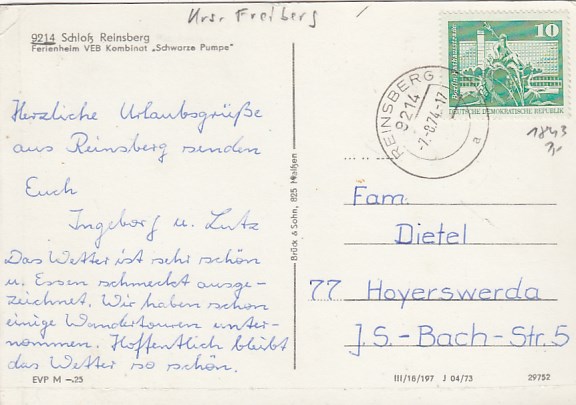 Krs. Freiberg
9214 Schloß Reinsberg
Ferienheim VEB Kombinat „Schwarze Pumpe"
Herzliche Urlaubsgrüße
aus Reinsberg senden
Euch
Ingeborg u. Lutz
Das Wetter ist sehr schön
u. Essen schmeckt ausge-
zeichnet. Wir haben schon
einige Wandertouren unter-
nommen. Hoffentlich bleibt
das Wetter so schön.
EVP M –.25
Brück & Sohn, 825 Meißen
10
Berlin, Rathausstraße
DEUTSCHE DEMOKRATISCHE REPUBLIK
REINSBERG
9214
-7.-8.74.-17
a
1843
Fam.
Dietel
77 Hoyerswerda
J.S.-Bach-Str. 5
III/18/197 J 04/73
29752